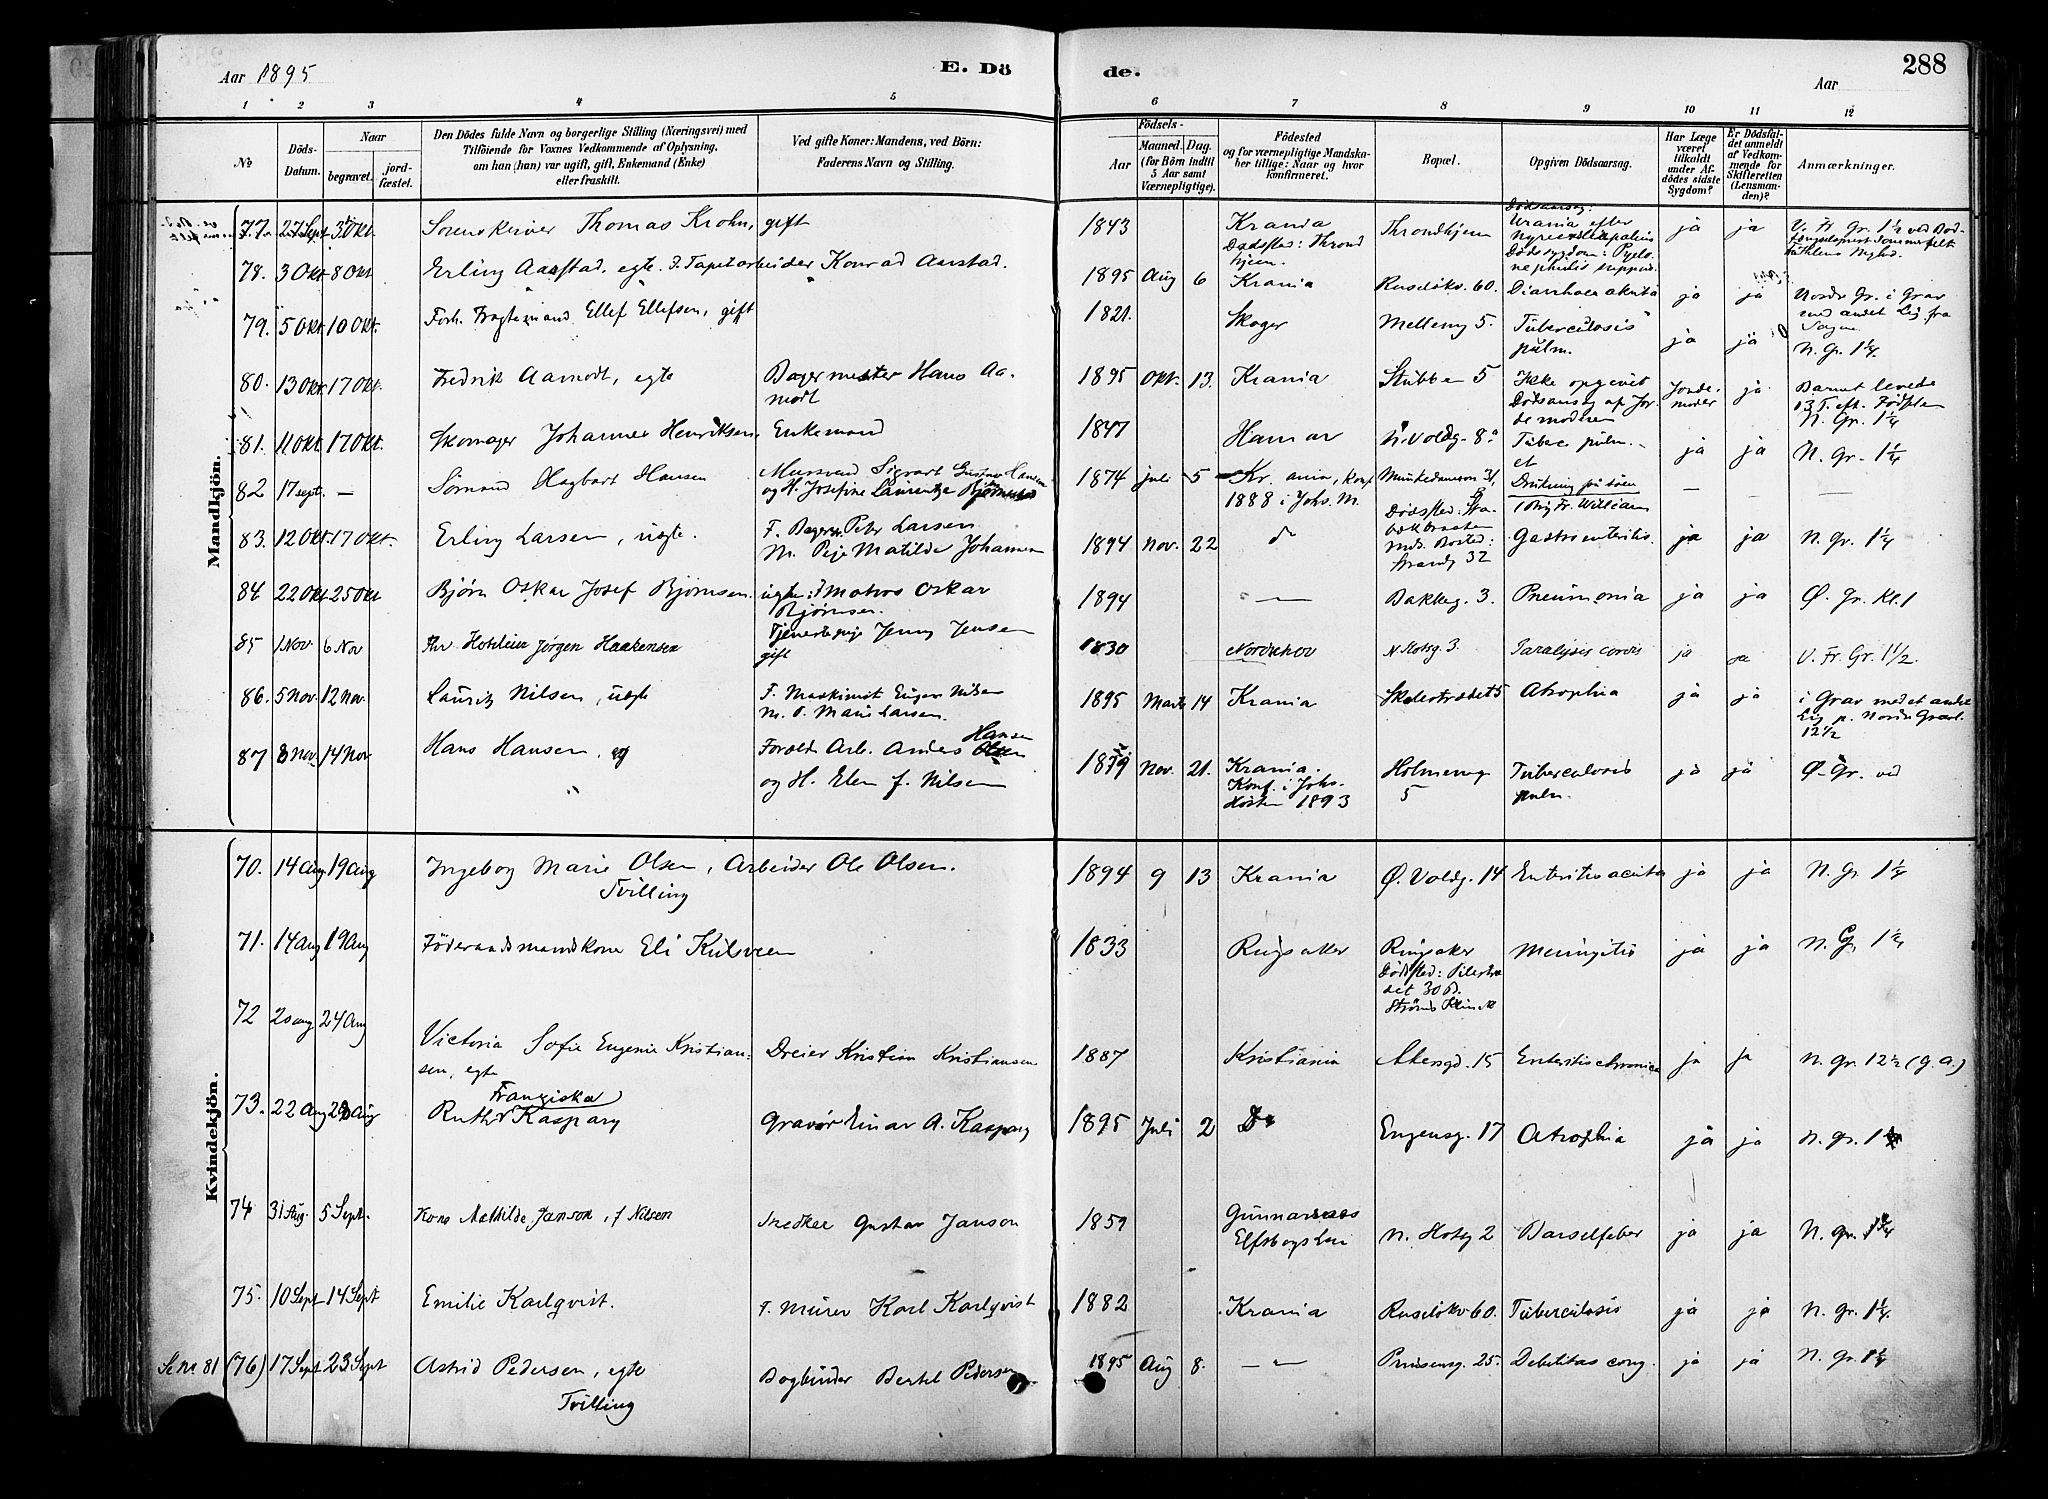 Aar 1895 E. Dö de. Aar 288
1 2 3 4 5 6 7 8 9 10 11 12
No
Döds-Datum.
Naar begravet. jordfæstet.
Den Dödes fulde Navn og borgerlige Stilling (Næringsvei) med
Tilföiende for Voxnes Vedkommende af Oplysning,
om han (hun) var ugift, gift, Enkemand (Enke)
eller fraskilt.
Ved gifte Koner: Mandens, ved Börn:
Faderens Navn og Stilling.
Födsels-
Aar
Maaned. Dag.
(for Börn indtil
5 Aar samt
Værnepligtige).
Födested
og for værnepligtige Mandskaber tillige: Naar og hvor
konfirmeret.
Bopæl.
Opgiven Dödsaarsag.
Har Læge
været
tilkaldt
under Afdödes sidste
Sygdom?
Er Dödsfaldet anmeldt
af Vedkommende for
Skifteretten
(Lensmanden)?
Anmærkninger.
Mandkjön.
77. 27 Sept 3 Okt. Sorenskriver Thomas Krohn, gift 1843 Krania Dødssted: Throndhjem Throndhjem ja ja
78. 3 Okt 8 Okt Erling Aarstad, egte. F. Tapetarbeider Konrad Aarstad. 1895 Aug 6 Krania Ruseløkv. 60. Diarrhoea akuta ja ja Nordr Gr. i Grav med andet Lig fra
79. 5 Okt. 10 Okt. Forh. Fragtemand Ellef Ellefsen, gift 1821. Skoger Mellemg 5. Tuberculosis pulm. ja ja N. Gr. 1¼.
80. 13 Okt. 17 Okt. Fredrik Aamodt, egte Bagermester Hans Aamodt 1895 Okt. 13. Krania Stubben 5 Ikke opgivet Dødsaarsag af Jordemoderen Jordemoder ja Barnet levede 13 T. eft. Fødselen N. Gr. 1¼
81. 11 Okt. 17 Okt. Skomager Johannes Henriksen, Enkemand 1847 Hamar N. Voldg. 8a Tuberc pulm. ja ja N. Gr. 1¼
82 17 sept. — Sømand Hagbart Hansen 1874 juli 5 Kr.ania, konf 1888 i Johs. M. Munkedamsv 31, Drukning på søen — — —
83. 12 Okt. 17 Okt. Erling Larsen, uegte. F. Bager Peter Larsen M. Pige Matilde Johansen 1894 Nov. 22 do Gastroenteritis. ja ja N. Gr. 1¼
84 22 Okt. 25 Okt Bjørn Oskar Josef Bjørnsen uegte: F Matros Oskar Bjørnsen. Tjenestepige Jenny Jensen 1894 — " — Bakkeg. 3. Pneumonia ja ja Ø. Gr. Kl. 1
85 1 Nov 6 Nov Jørgen Haakensen gift 1830 Norderhov N. Slotsg. 3. Paralysis cordis ja ja V. Fr. Gr. 1½.
86. 5 Nov. 12 Nov. Lauritz Nilsen, uegte F. Maskinist Eugen Nilsen M. Marie Larsen. 1895 Marts 14 Krania Skolestrædet 5 Atrophia ja ja i Grav med et andet Lig p. Nordr Gravl. 12½
87 8 Nov. 14 Nov Hans Hansen, ug Foræld: Arb. Anders Hansen og H. Elen f. Nilsen 1879 Nov. 21. Krania. Konf. i Johs. Høsten 1893 Holmensg 5 Tuberculosis pulm. ja ja Ø. Gr. ved
Kvindekjön.
70. 14 Aug 19 Aug Ingeborg Marie Olsen, Arbeider Ole Olsen. Tvilling 1894 9 13 Krania Ø. Voldg. 14 Enteritis acuta ja ja N. Gr 1¼
71. 14 Aug 19 Aug Føderaadsmandskone Eli Kulsveen 1833 Ringsaker Ringsaker Dødssted: Pilestrædet 30 Strøms Klinik Meningitis ja ja N. Gr. 1¼
72 20 aug 24 Aug Victoria Sofie Eugenie Kristiansen, egte Dreier Kristian Kristiansen 1887 Kristiania Akersgd. 15 Enteritis chronica ja ja N. Gr. 12½ (g. a.)
73. 22 Aug 28 Aug Ruth Franziska Kaspary Gravør Einar A. Kaspary 1895 Juli 2 Do Eugensg. 17 Atrophia ja ja N. Gr. 1
74 31 Aug. 5 Sept. Kone Mathilde Janson, f Nilsen Snedker Gustav Janson 1859 Elfsborgs Len N. Slotsg 2 Barselfeber ja ja N. Gr. 1¼
75. 10 Sept 14 Sept Emilie Karlqvist. F. Murer Karl Karlqvist 1882 Krania Ruseløkv. 60. Tuberculosis ja ja N. Gr. 1¼.
Se No 81 (76) 17 Sept 23 Sept Astrid Pedersen, egte Tvilling Bogbinder Bertel Pedersen 1895 Aug 8. — " — Prinsensg. 25. Debilitas cong. ja ja N. Gr. 1¼